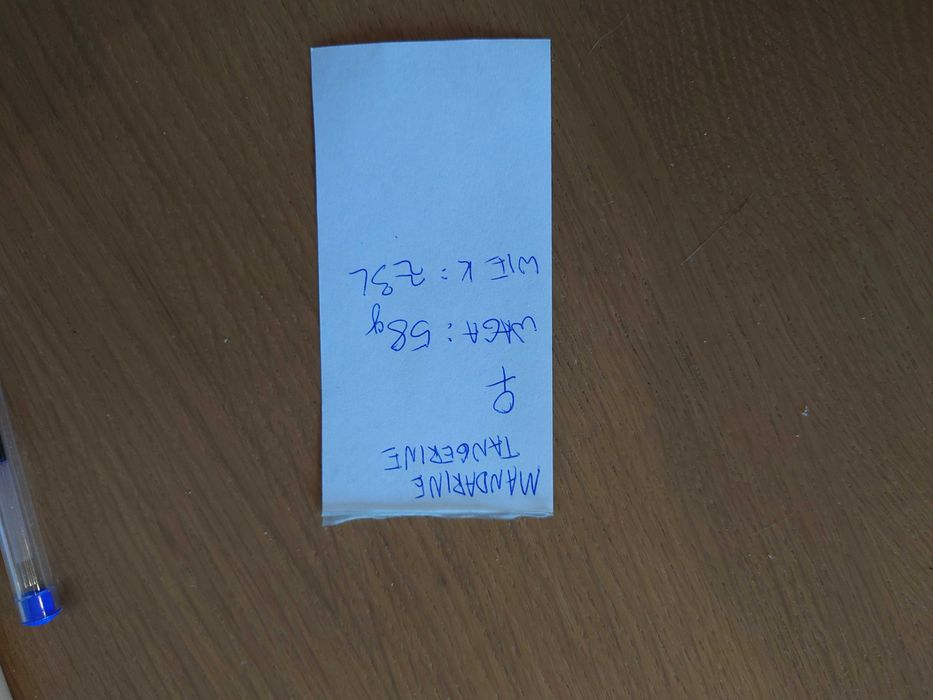 MANDARINE
TANGERINE
♀
WAGA: 58g
WIEK: 2-3L